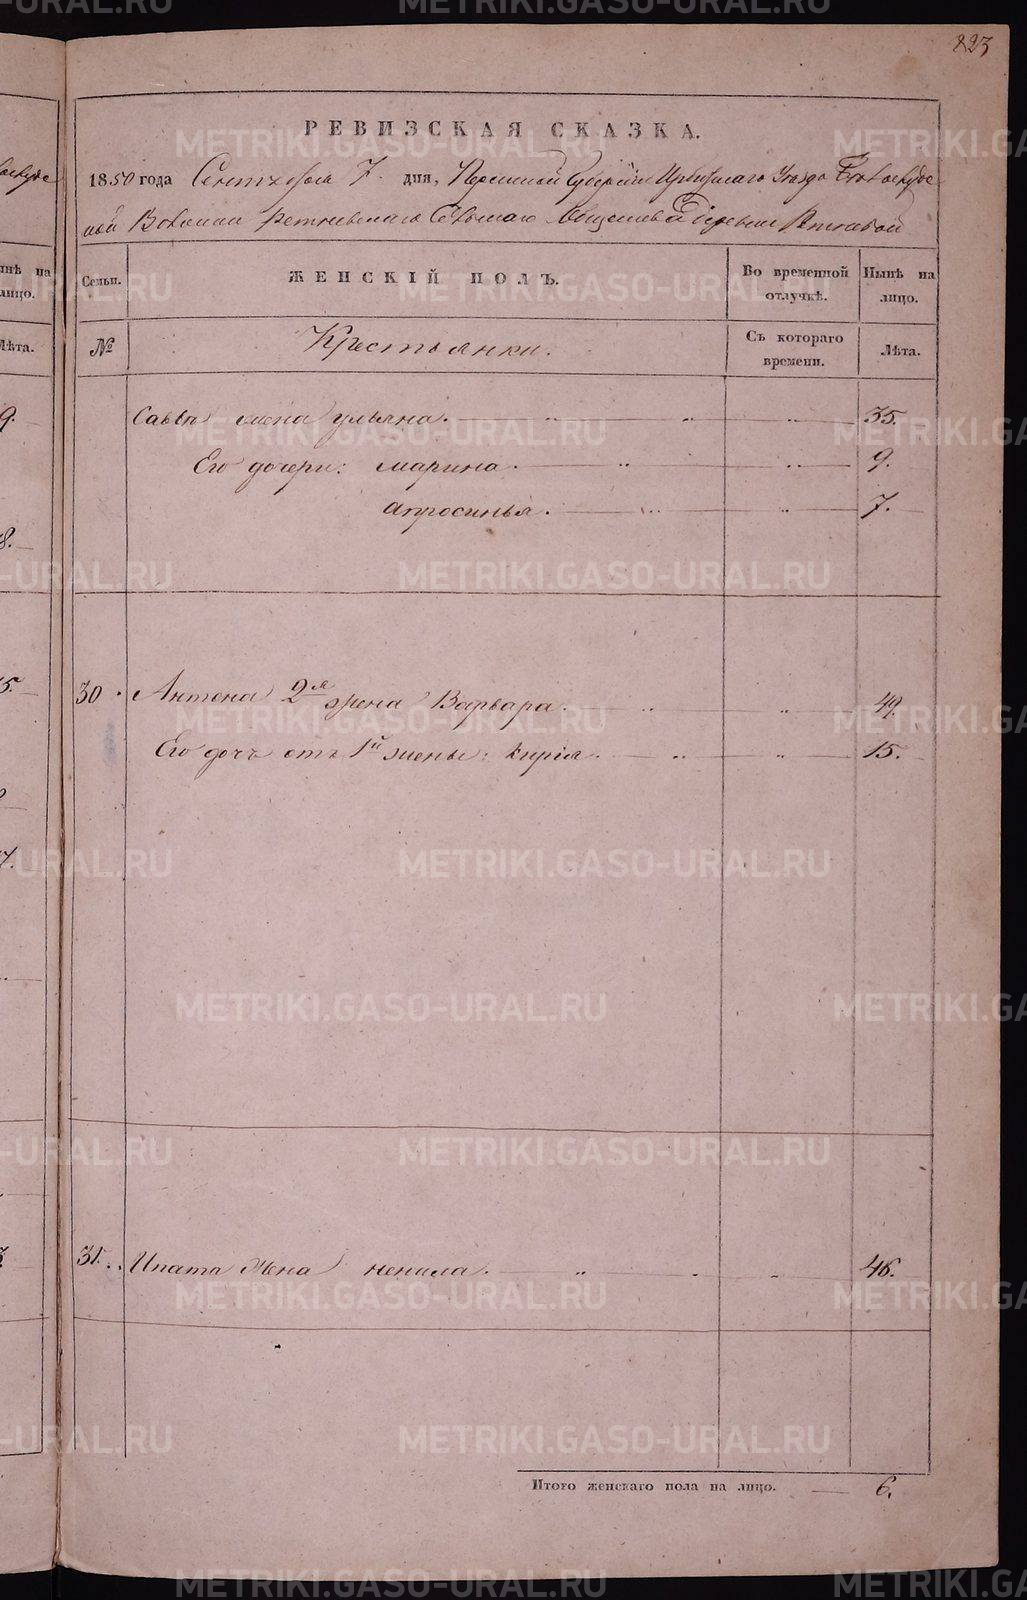 823
РЕВИЗСКАЯ СКАЗКА.
1850 года Сентября 7 дня, Пермской Губернии Ирбитскаго Уезда
ской Волости Сельскаго Общества Деревни
Семьи. ЖЕНСКІЙ ПОЛЪ. Во временной отлучкѣ. Нынѣ на лицо.
№ Крестьянки. Съ котораго времени. Лѣта.
Саввы жена ульяна. 35.
Его дочери: марина. 9.
апросинья. 7.
30. Антона 2я жена Варвара. 49.
Его дочь отъ 1й жены: кирія. 15.
31. Ипата Жена ненила. 46.
Итого женскаго пола на лицо. 6.
нынѣ на
лицо.
Лѣта.
METRIKI.GASO-URAL.RU